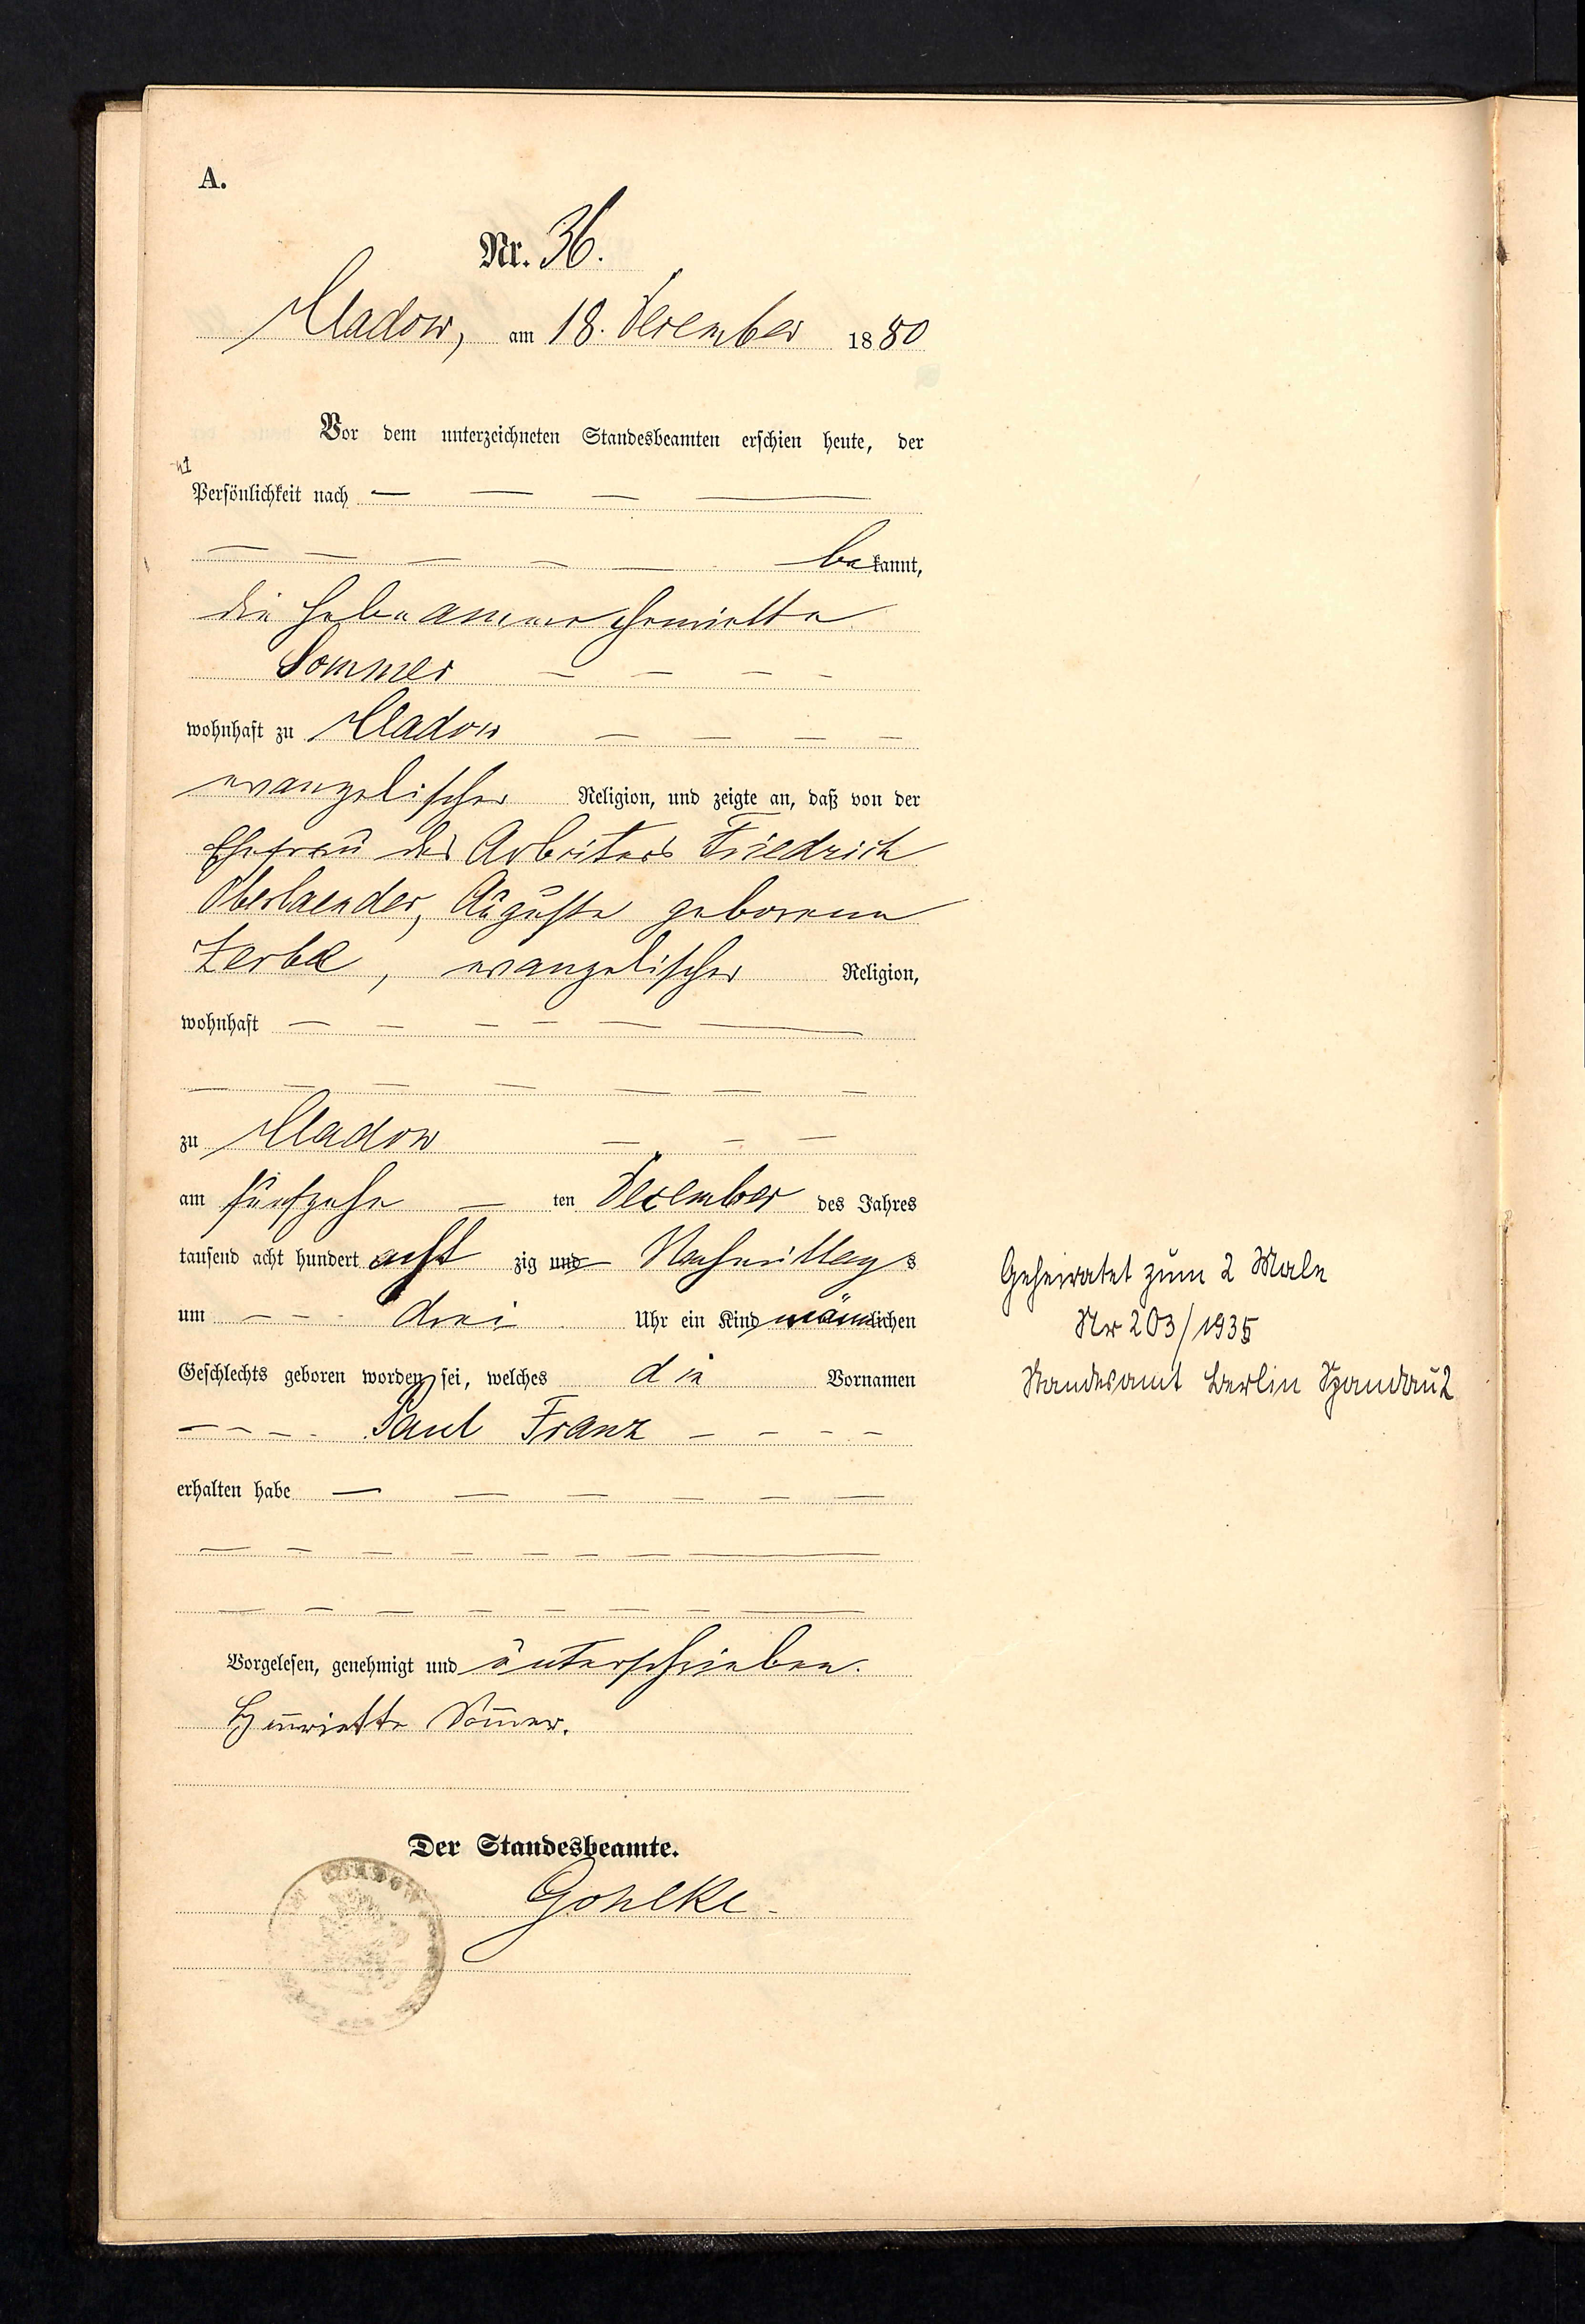 A.
Nr. 36.
Cladow, am 18. December 1880
Vor dem unterzeichneten Standesbeamten erschien heute, der
Persönlichkeit nach
bekannt,
die Hebeamme Henriette
Sommer
wohnhaft zu Cladow
evangelischer Religion, und zeigte an, daß von der
Ehefrau des Arbeiters Friedrich
Oberlaender, Auguste geborene
Zerbe, evangelischer Religion,
wohnhaft
zu Cladow
am fünfzehnten December des Jahres
tausend acht hundert achtzig und Nachmittags
um drei Uhr ein Kind männlichen
Geschlechts geboren worden sei, welches die Vornamen
Paul Franz
erhalten habe
Vorgelesen, genehmigt und unterschrieben.
Henriette Som̄er.
Der Standesbeamte.
Gohlke
Geheiratet zum 2 Male
Nr 203/1935
Standesamt Berlin Spandau 2